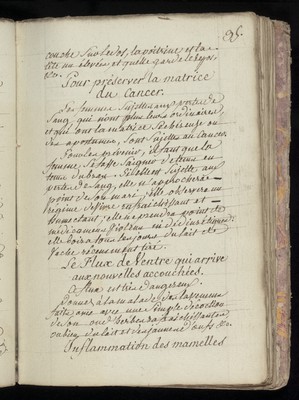 95.
couche sur le dos, la poitrine et la
tête un élevées et quelle garde le repos,
&ca.
Pour préserver la matrice
du Cancer.
Les femmes sujettes aux pertes de
sang, qui n'ont plus leurs ordinaires
et qui ont la matrice
sont sujettes au Cancer.
Pour les prévenir, il faut que la
femme se fasse saigner de tems en
tems du bras. Si elle est sujette aux
pertes de sang, elle n'approchera
point de son mari, elle observera un
régime de vivre rafraichissant et
humectant; elle ne prendra point de
médicamens
elle boira tous les jours du lait de
Vache récemment tiré.
Le Flux de Ventre qui arrive
aux nouvelles accouchées.
Ce flux est très dangereux.
Donner à la malade des lavemens
faits avec une simple décoction
de son ou d'herbes rafraichissantes
ou bien du lait et des jaunes d'œufs &c.
Inflammation des mamelles